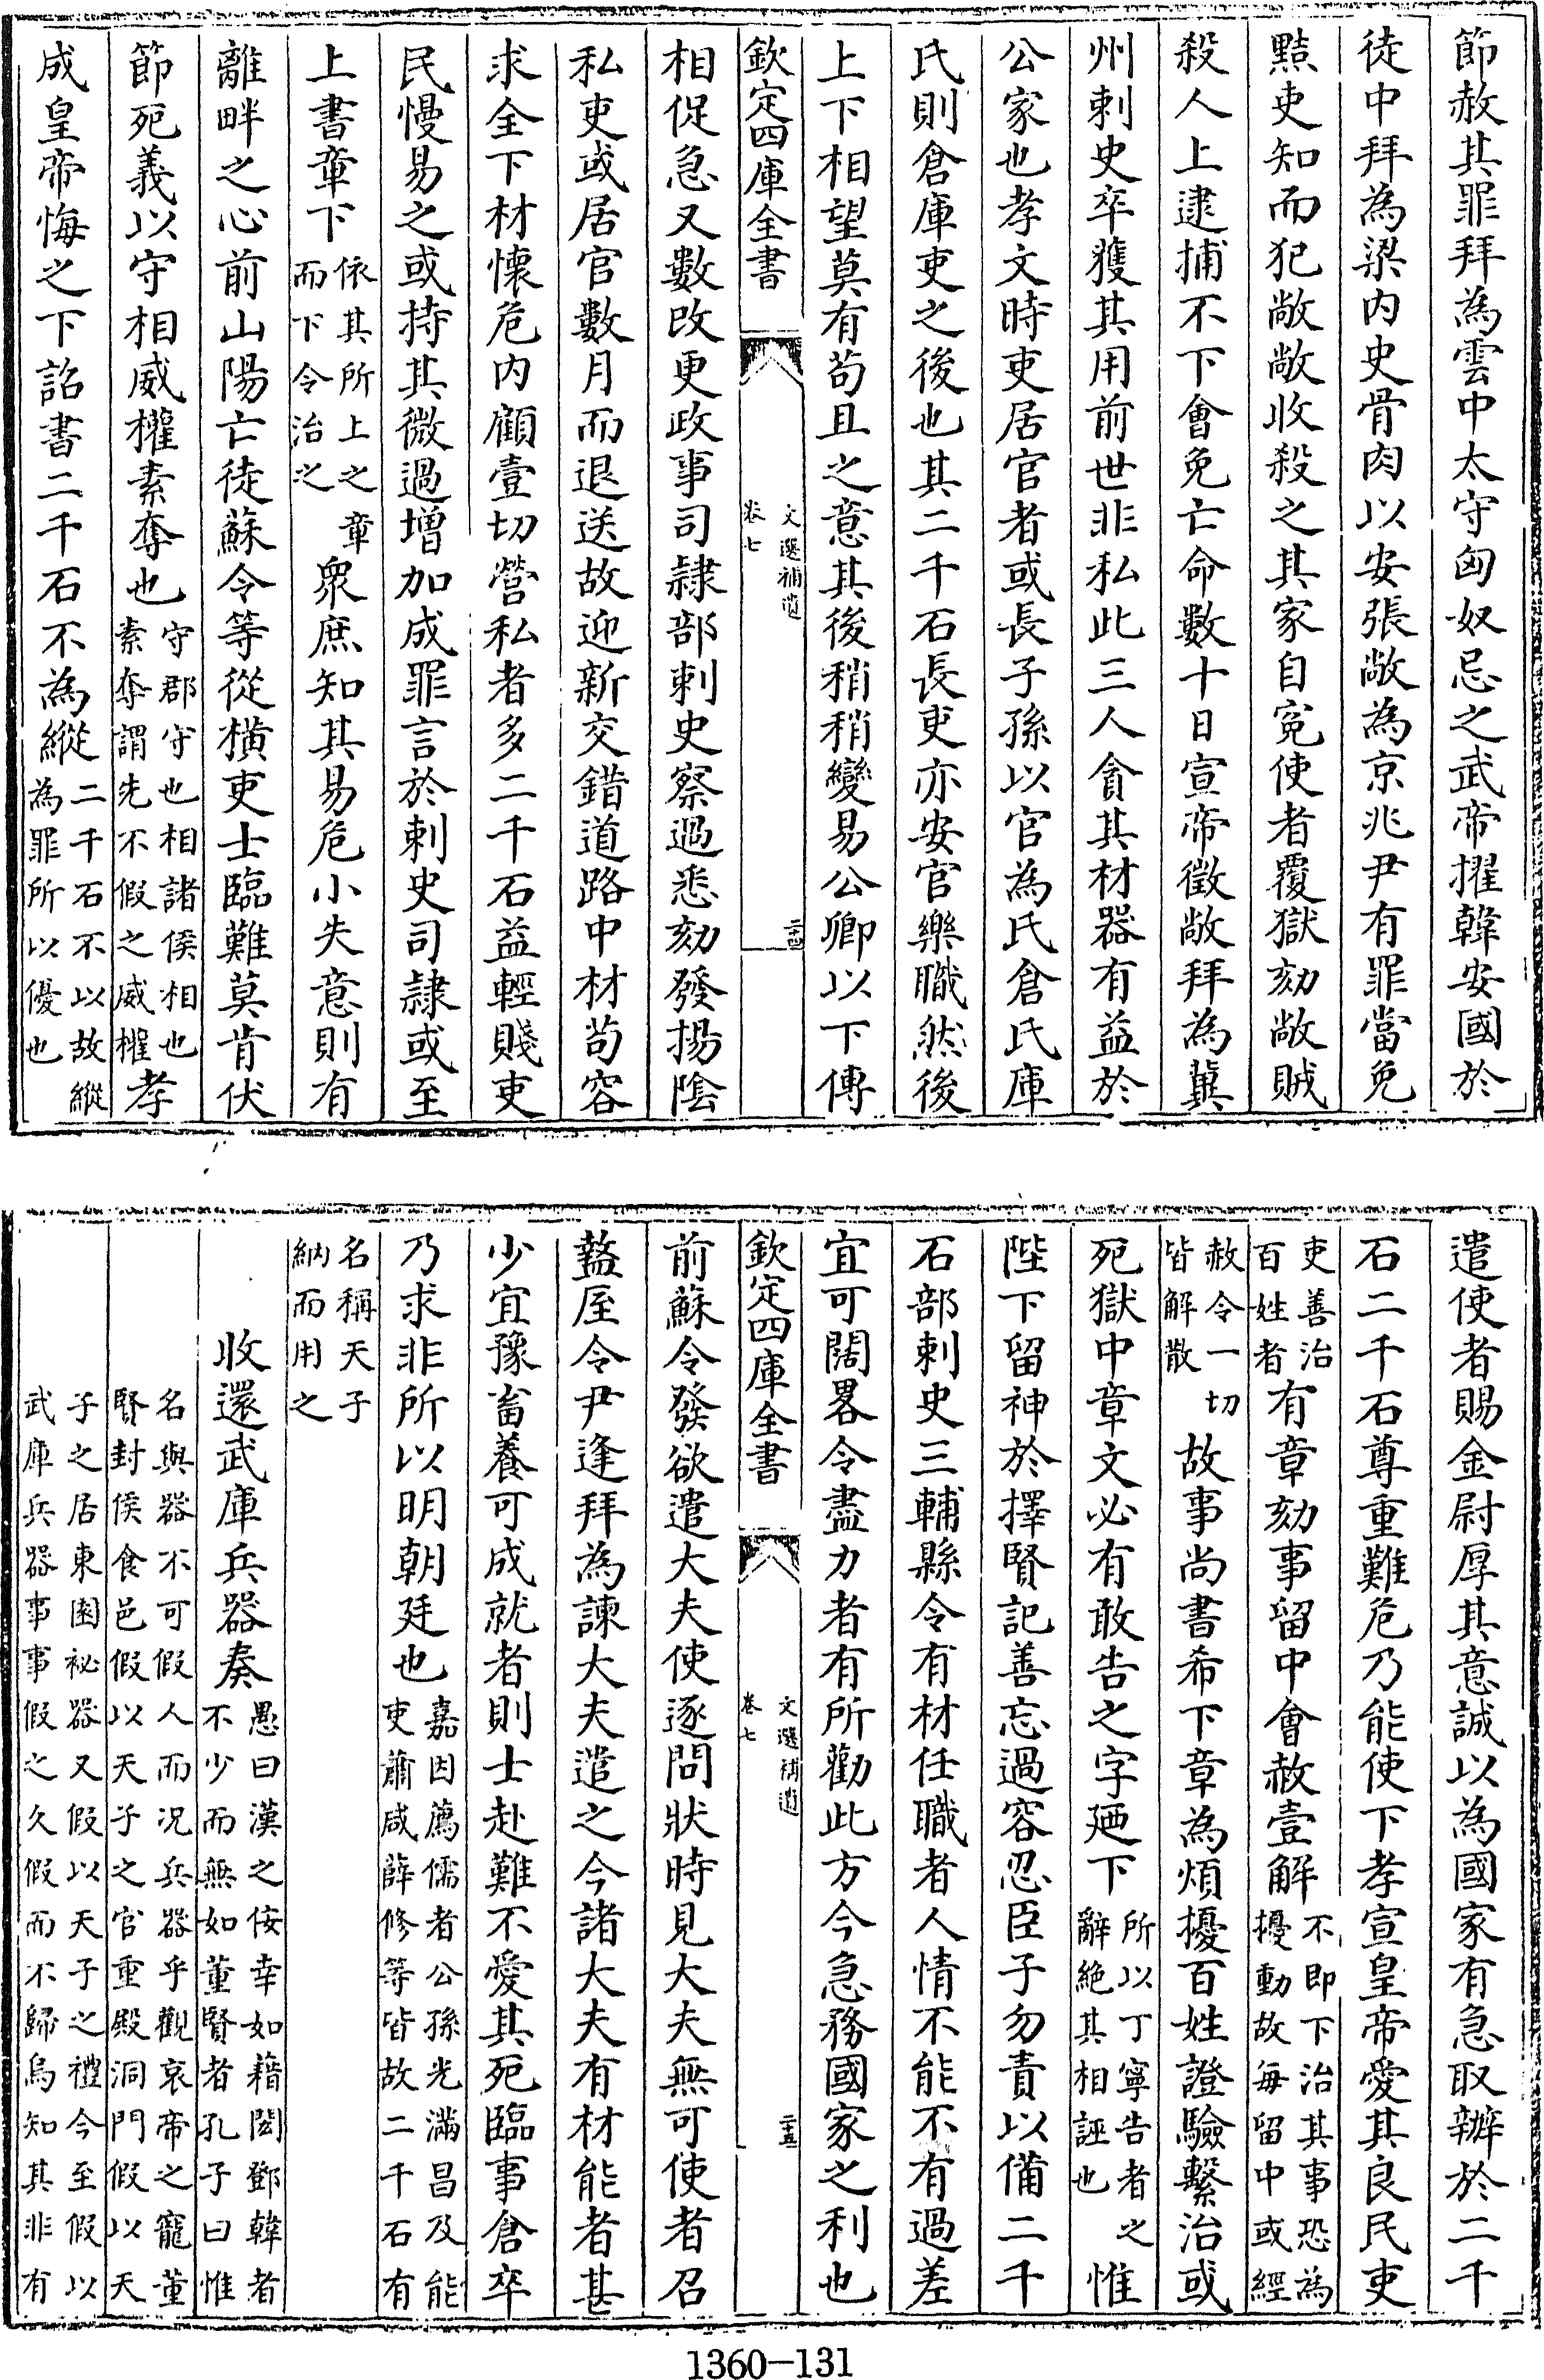 節赦其罪拜為雲中太守匈奴忌之武帝擢韓安國於
徒中拜為梁內史骨肉以安張敞為京兆尹有罪當免
黠吏知而犯敞敞收殺之其家自冤使者覆獄劾敞賊
殺人上逮捕不下會免亡命數十日宣帝徵敞拜為冀
州刺史卒獲其用前世非私此三人貪其材器有益於
公家也孝文時吏居官者或長子孫以官為氏倉氏庫
氏則倉庫吏之後也其二千石長吏亦安官樂職然後
上下相望莫有苟且之意其後稍稍變易公卿以下傳
欽定四庫全書
文選補遺
卷七
二十四
相促急又數改更政事司隷部刺史察過悉劾發揚陰
私吏或居官數月而退送故迎新交錯道路中材苟容
求全下材懷危內顧壹切營私者多二千石益輕賤吏
民慢易之或持其微過增加成罪言於刺史司隷或至
上書章下
依其所上之章
而下令治之
衆庶知其易危小失意則有
離畔之心前山陽亡徒蘇令等從橫吏士臨難莫肯伏
節死義以守相威權素奪也
守郡守也相諸侯相也
素奪謂先不假之威權
孝
成皇帝悔之下詔書二千石不為縱
二千石不以故縱
為罪所以優也
遣使者賜金尉厚其意誠以為國家有急取辦於二千
石二千石尊重難危乃能使下孝宣皇帝愛其良民吏
吏善治
百姓者
有章劾事留中會赦壹解
不即下治其事恐為
擾動故每留中或經
赦令一切
皆解散
故事尚書希下章為煩擾百姓證驗繫治或
死獄中章文必有敢告之字廼下
所以丁寧告者之
辭絶其相誣也
惟
陛下留神於擇賢記善忘過容忍臣子勿責以備二千
石部刺史三輔縣令有材任職者人情不能不有過差
宜可闊畧令盡力者有所勸此方今急務國家之利也
欽定四庫全書
文選補遺
卷七
二十五
前蘇令發欲遣大夫使逐問狀時見大夫無可使者召
盩厔令尹逢拜為諫大夫遣之今諸大夫有材能者甚
少宜豫畜養可成就者則士赴難不愛其死臨事倉卒
乃求非所以明朝廷也
嘉因薦儒者公孫光滿昌及能
吏蕭咸薛修等皆故二千石有
名稱天子
納而用之
收還武庫兵器奏
愚曰漢之佞幸如藉閎鄧韓者
不少而無如董賢者孔子曰惟
名與器不可假人而况兵器乎觀哀帝之寵董
賢封侯食邑假以天子之官重殿洞門假以天
子之居東園祕器又假以天子之禮今至假以
武庫兵器事事假之久假而不歸烏知其非有
1360-131